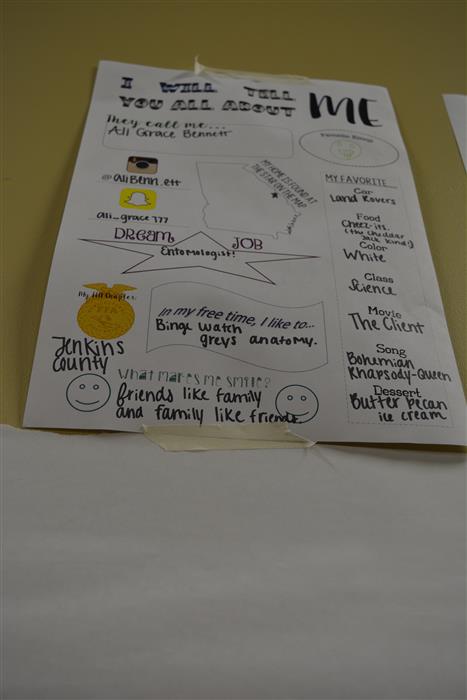 I WILL TELL
YOU ALL ABOUT ME
They call me...
Ali Grace Bennett
Favorite Emoji
@aliBenn_ett
ali_grace777
MY HOME IS FOUND AT
THE STAR ON THE MAP
MY FAVORITE
Car
Land Rovers
Food
Cheez-its.
(the cheddar
jack kind!)
Color
White
Class
Science
Movie
The Client
Song
Bohemian
Rhapsody-Queen
Dessert
Butter pecan
ice cream
DREAM JOB
Entomologist!
My FFA Chapter:
FFA
Jenkins
County
In my free time, I like to...
Binge watch
greys anatomy.
What makes me smile?
friends like family
and family like friends.